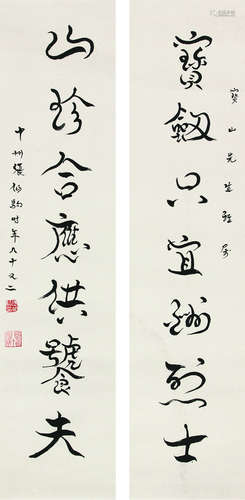 寶山先生雅屬
寶劒只宜酬烈士
山珍合應供饕夫
中州張伯駒時年八十又二